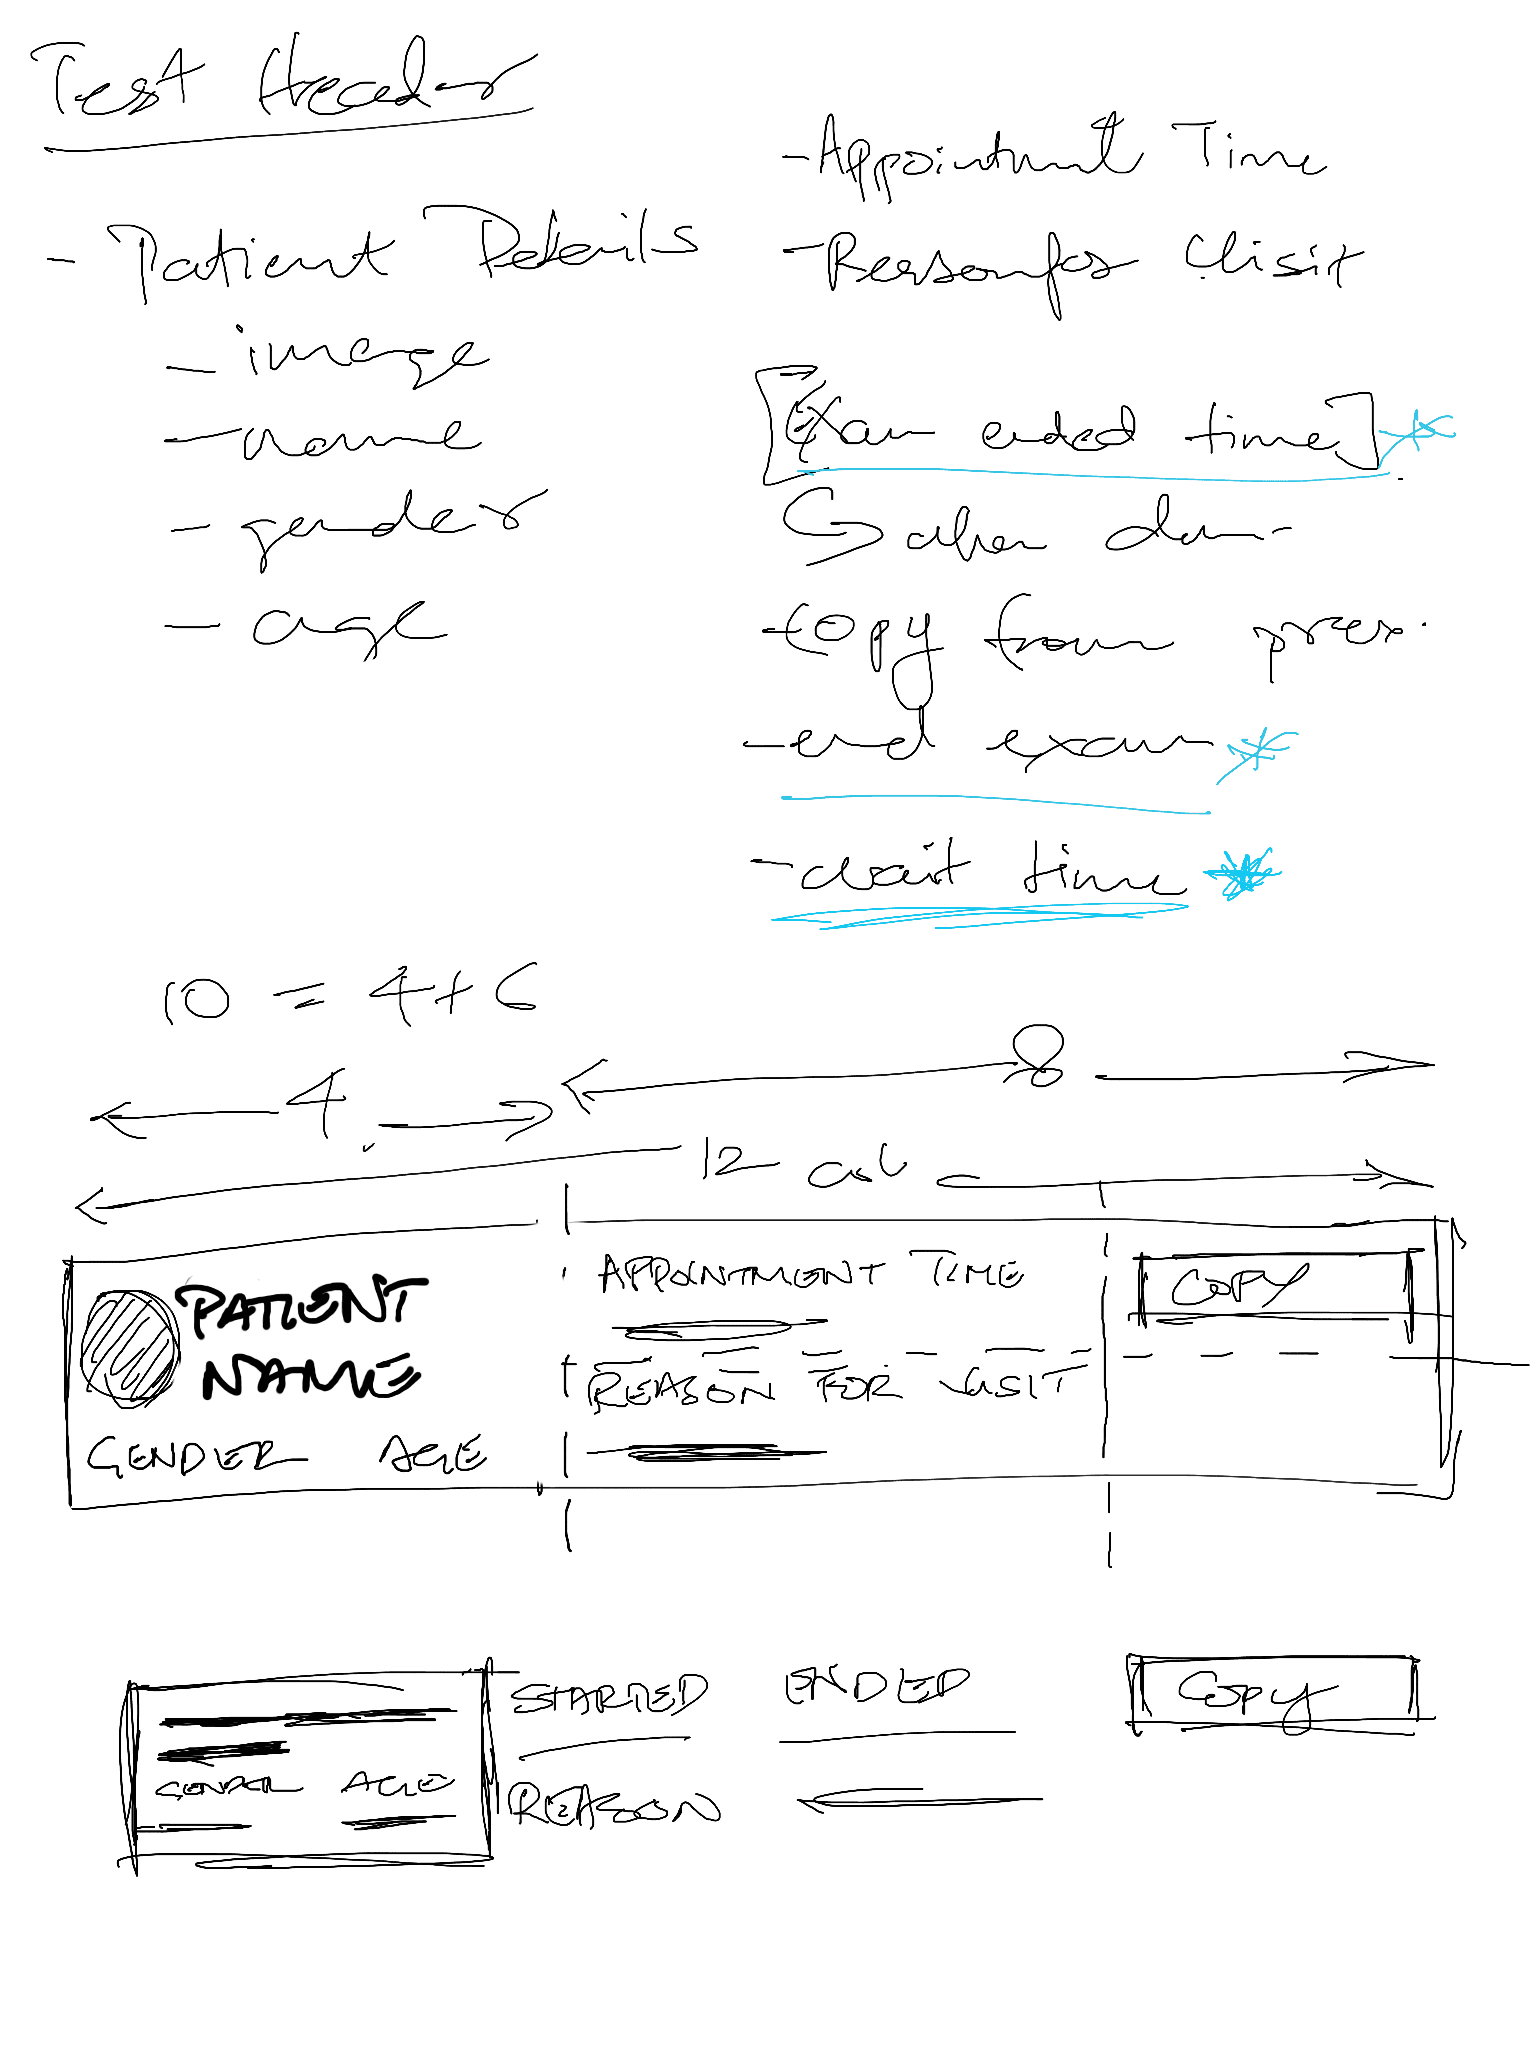 Test Header
- Patient Details
- image
- name
- gender
- age
- Appointment Time
- Reason for Visit
[Exam ended time] *
when done
- Copy from prev.
- end exam *
- wait time *
10 = 4+6
4
8
12 col
PATIENT
NAME
GENDER AGE
APPOINTMENT TIME
REASON FOR VISIT
COPY
GENDER AGE
STARTED ENDED
REASON
Copy